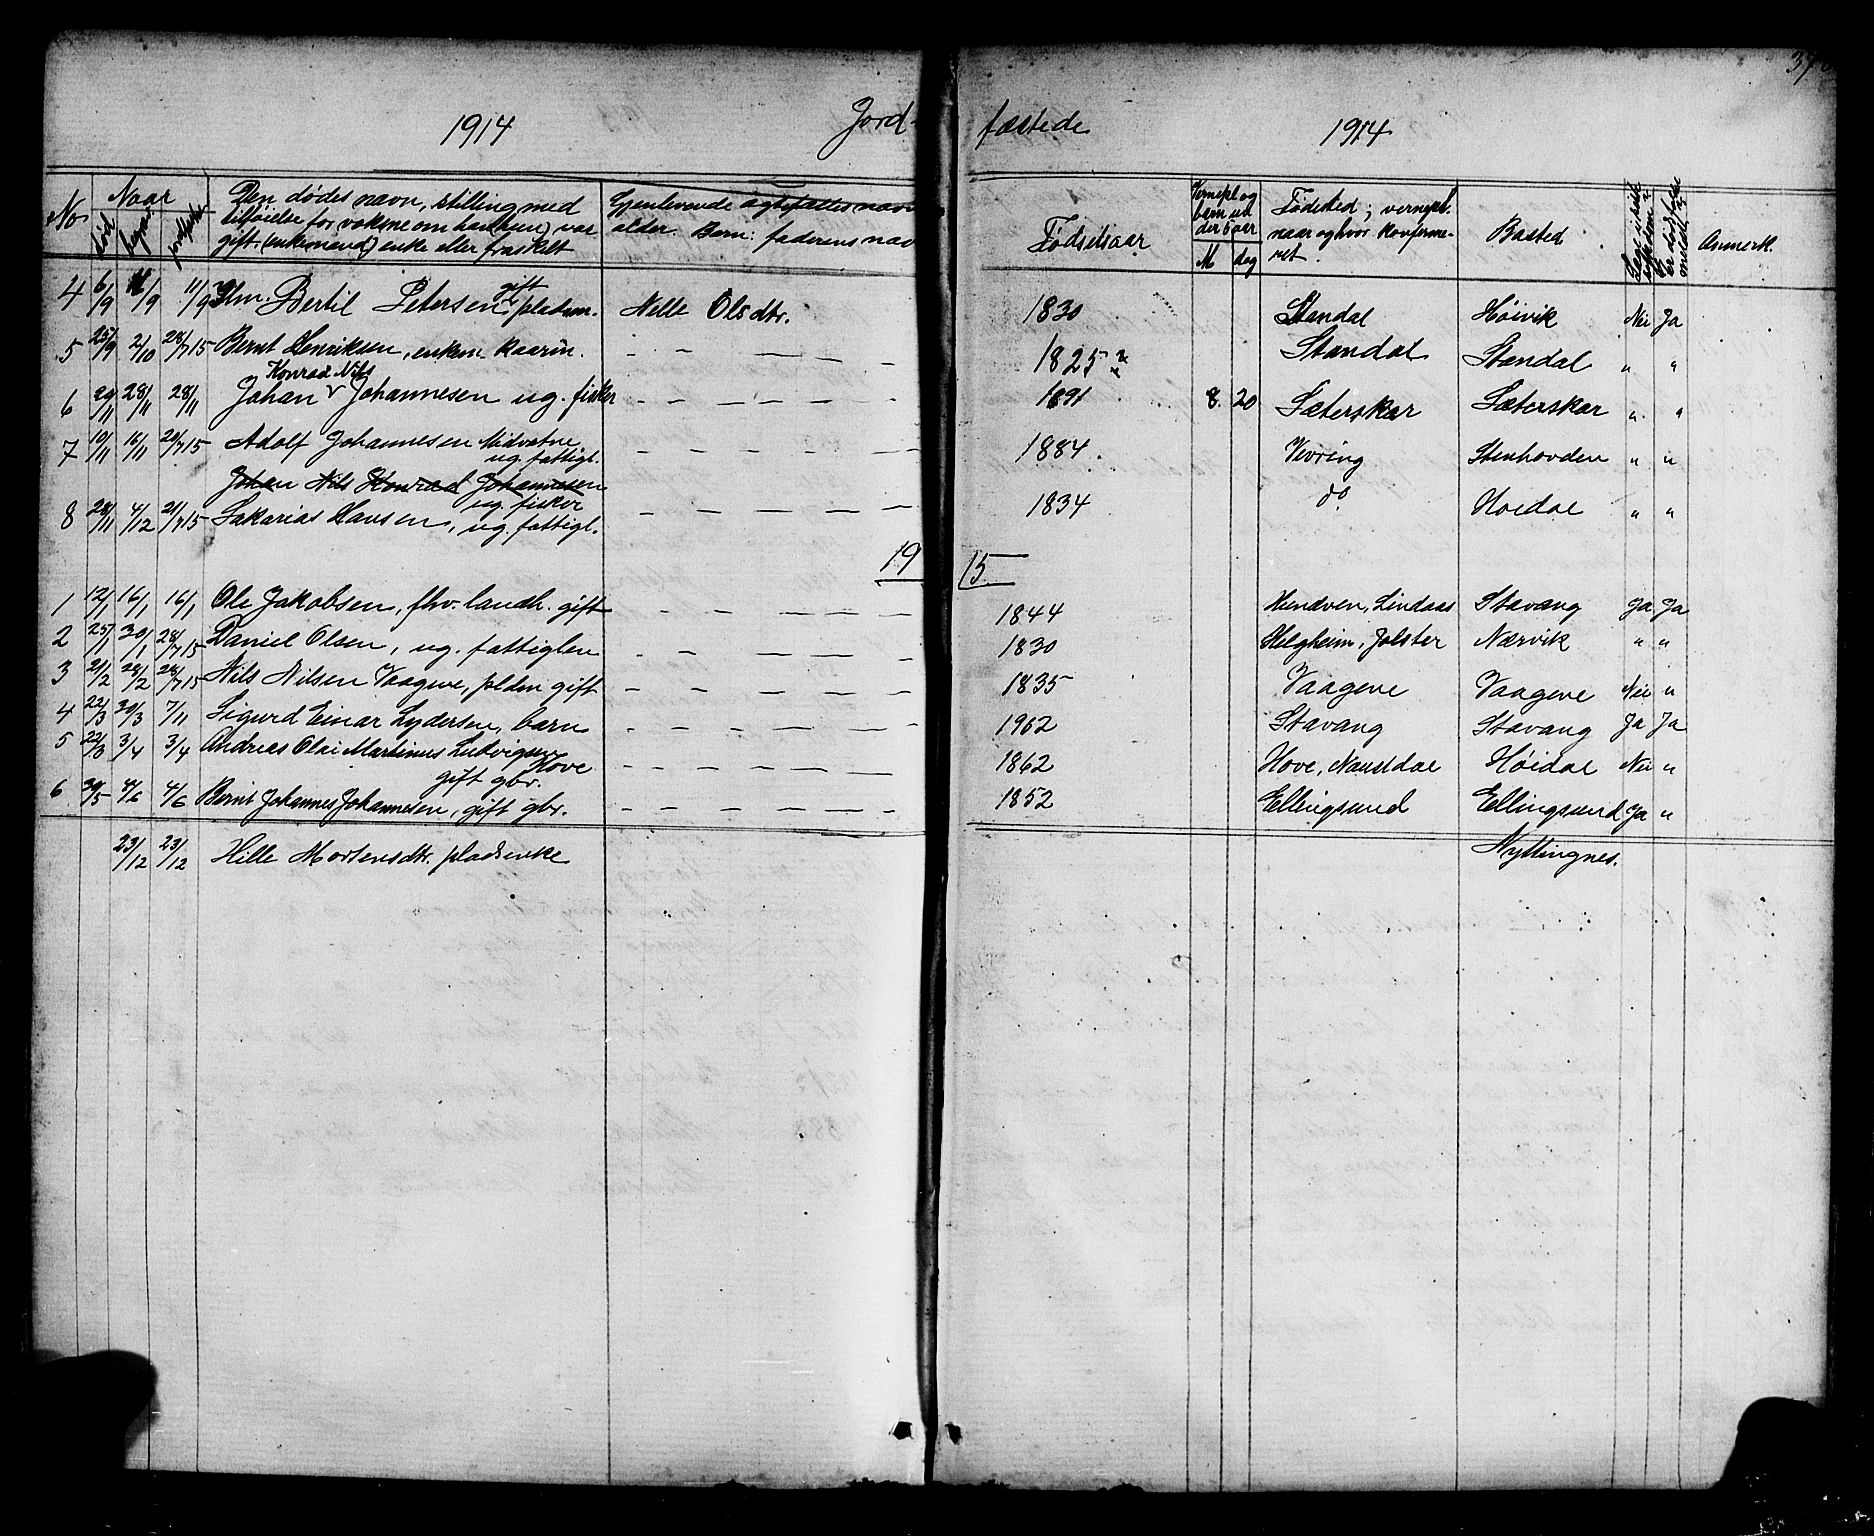 1914 Jord- fæstede 1914
No Naar Den dødes navn, stilling med Gjenlevende ægtefælles navn
død begr. jordfæstet tilføielse for voksne om han(hun) var alder. Barn: faderens nav
gift, (enkemand) enke eller fraskilt
Fødselsaar Vernepl. og barn under 5 aar M dag Fødested; vernepl. naar og hvor konfirmeret. Bosted Anmerk.
4 6/9 11/9 11/9 Bertil Petersen gift pladsm. Nille Olsdtr. 1830 Standal Høivik Nei Ja
5 25/9 2/10 28/7 15 Bernt Henriksen, enkem. kaarm. — — — — 1825 ? Standal Standal " "
Konrad Nils
6 20/11 28/11 28/11 Johan v Johannesen ug. fisker — — — — — 1891 8 20 Sæterskar Sæterskar " "
7 10/11 16/11 20/7 15 Adolf Johannesen Midvatne — — — — — 1884 Vevring Stenhovden " "
ug. fattigl.
Johan Nils Konrad Johannesen
ug. fisker
8 28/11 4/12 21/7 15 Sakarias Hansen, ug. fattigl. — — — — — 1834 do Hoidal " "
19 15
1 12/1 16/1 16/1 Ole Jakobsen, fhv. landh. gift — — — — — 1844 Hundven, Lindaas Stavang Ja Ja
2 25/1 30/1 28/7 15 Daniel Olsen, ug. fattiglem — — — — — 1830 Helgheim, Jolster Nærvik " "
3 21/2 28/2 28/7 15 Nils Nilsen Vaagene, pldm gift — — — — — 1835 Vaagene Vaagene Nei "
4 22/3 30/3 7/11 Sigurd Einar Lydersen, barn — — — — — 1962 Stavang Stavang Ja Ja
5 22/3 3/4 3/4 Andreas Olai Martinus Ludvigsen — — — — — 1862 Hove, Naustdal Høidal Nei "
Hove
gift gbr.
6 30/5 4/6 4/6 Bernt Johannes Johannesen, gift gbr. — — — — — 1852 Ellingsund Ellingsund Ja "
23/12 23/12 Hille Mortensdtr. pladsenke Nyttingnes.